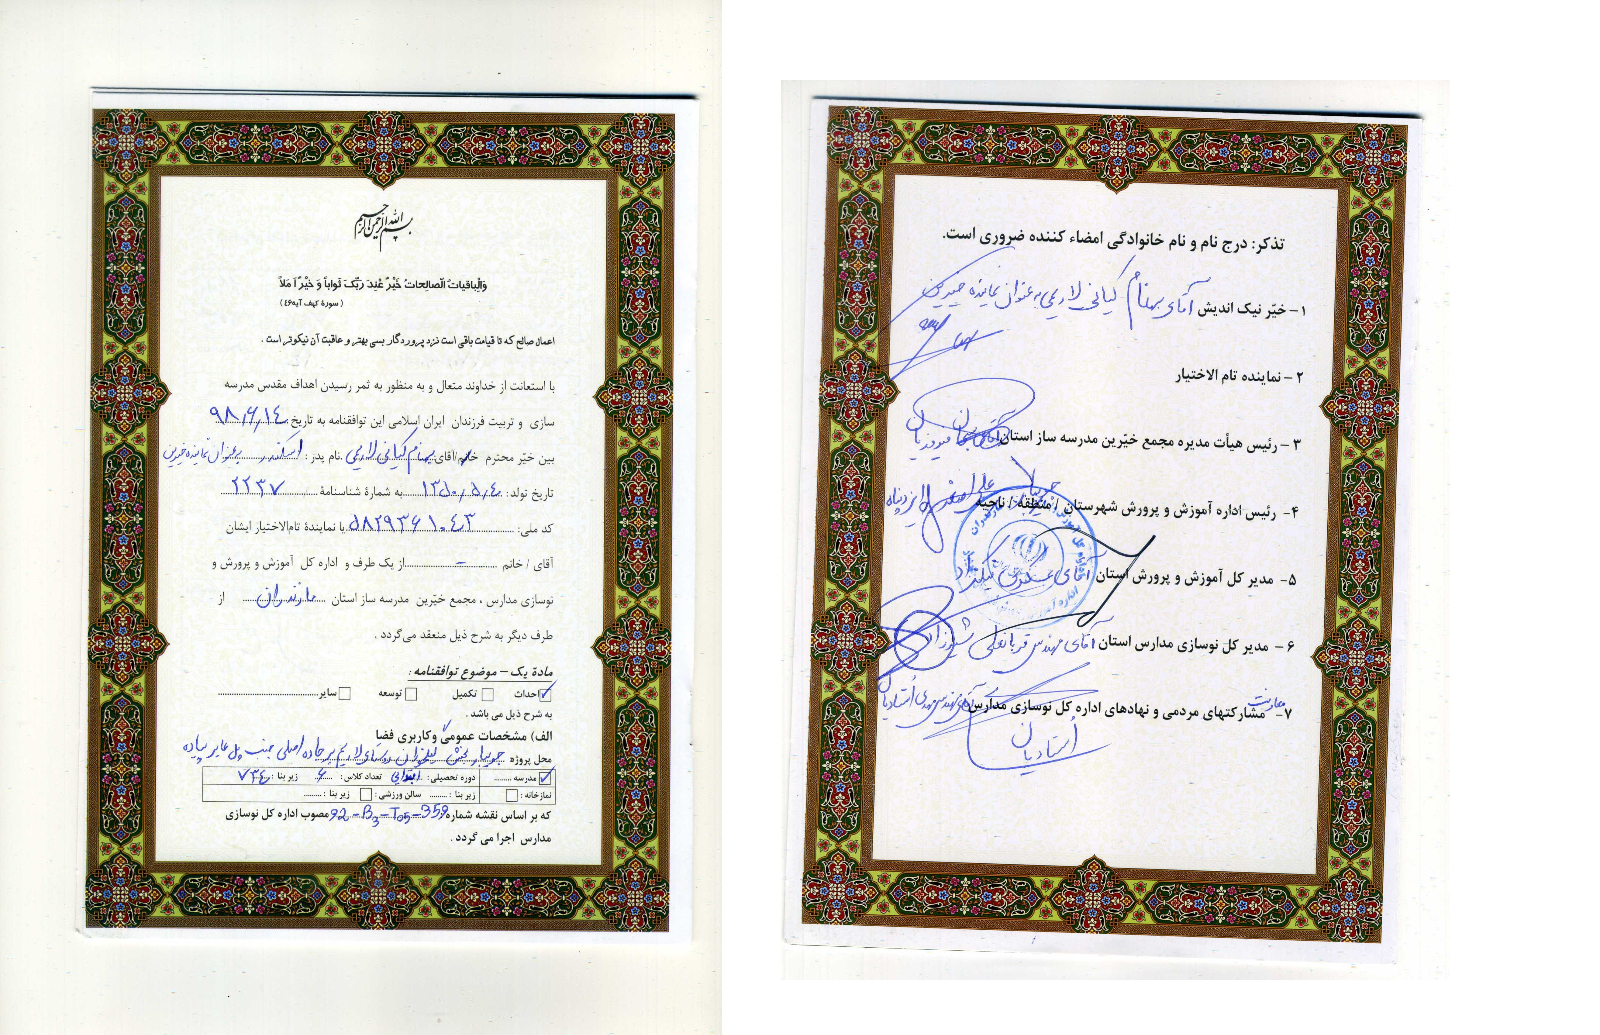 بسم الله الرحمن الرحیم
وَالْباقیاتُ الصالِحاتُ خَیْرٌ عِنْدَ رَبِّکَ ثَواباً وَ خَیْرٌ اَمَلاً
(سورهٔ کهف آیه۴۶)
اعمال صالح که تا قیامت باقی است نزد پروردگار بسی بهتر و عاقبت آن نیکوتر است .
با استعانت از خداوند متعال و به منظور به ثمر رسیدن اهداف مقدس مدرسه
سازی و تربیت فرزندان ایران اسلامی این توافقنامه به تاریخ ۹۸/۶/۱۴
بین خیّر محترم خانم/آقای: بهنام کیانی لاریمی نام پدر: اسکندر به عنوان نماینده خیرین
تاریخ تولد: ۱۳۵۰/۵/۴ به شمارهٔ شناسنامهٔ ۲۲۳۷
کد ملی: ۵۸۲۹۳۶۱۰۴۳ یا نمایندهٔ تام‌الاختیار ایشان
آقای / خانم – از یک طرف و اداره کل آموزش و پرورش و
نوسازی مدارس ، مجمع خیّرین مدرسه ساز استان مازندران از
طرف دیگر به شرح ذیل منعقد می‌گردد .
مادهٔ یک – موضوع توافقنامه :
احداث تکمیل توسعه سایر
به شرح ذیل می باشد .
الف) مشخصات عمومی وکاربری فضا
محل پروژه جویبار بخش گیلخوران روستای لاریم بر جاده اصلی جنب پل عابر پیاده
مدرسه دوره تحصیلی: ابتدایی تعداد کلاس: ۶ زیر بنا : ۷۳۴
نمازخانه : زیر بنا : سالن ورزشی : زیر بنا :
که بر اساس نقشه شماره 92-B3-T05-359 مصوب اداره کل نوسازی
مدارس اجرا می گردد .
تذکر: درج نام و نام خانوادگی امضاء کننده ضروری است.
۱- خیّر نیک اندیش آقای بهنام کیانی لاریمی به عنوان نماینده خیرین
۲- نماینده تام الاختیار
۳- رئیس هیأت مدیره مجمع خیّرین مدرسه ساز استان آقای
۴- رئیس اداره آموزش و پرورش شهرستان / منطقه / ناحیه جویبار علی اصغر ایزدپناه
۵- مدیر کل آموزش و پرورش استان آقای
۶- مدیر کل نوسازی مدارس استان آقای مهندس قربانعلی
۷- معاونت مشارکتهای مردمی و نهادهای اداره کل نوسازی مدارس آقای مهندس مهدی استادیان
استادیان